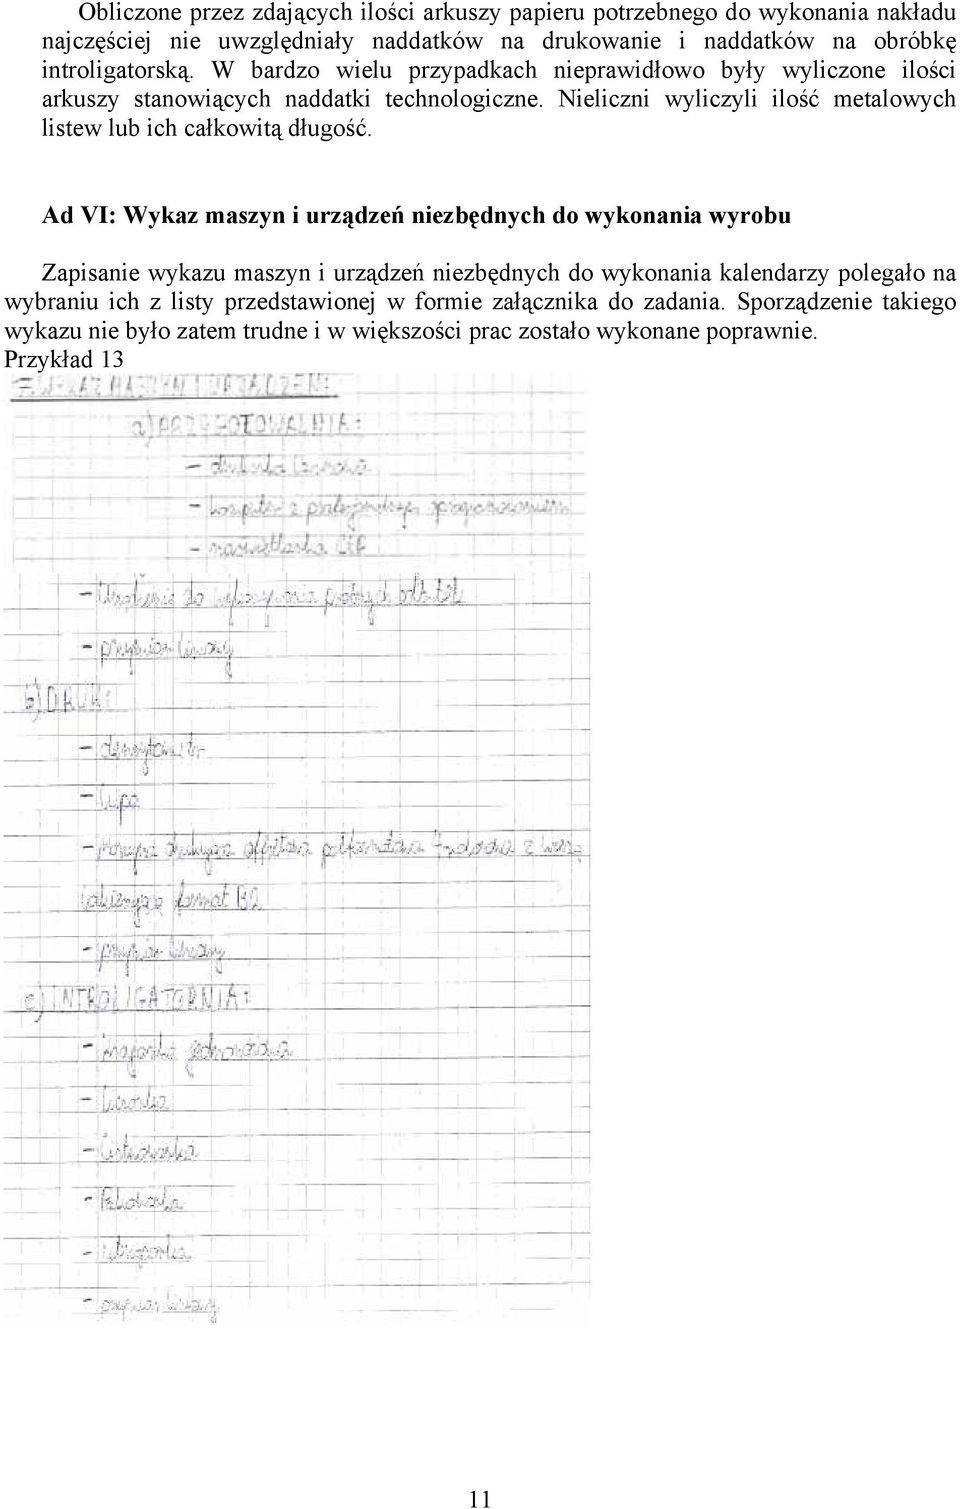 Obliczone przez zdających ilości arkuszy papieru potrzebnego do wykonania nakładu
najczęściej nie uwzględniały naddatków na drukowanie i naddatków na obróbkę
introligatorską. W bardzo wielu przypadkach nieprawidłowo były wyliczone ilości
arkuszy stanowiących naddatki technologiczne. Nieliczni wyliczyli ilość metalowych
listew lub ich całkowitą długość.
Ad VI: Wykaz maszyn i urządzeń niezbędnych do wykonania wyrobu
Zapisanie wykazu maszyn i urządzeń niezbędnych do wykonania kalendarzy polegało na
wybraniu ich z listy przedstawionej w formie załącznika do zadania. Sporządzenie takiego
wykazu nie było zatem trudne i w większości prac zostało wykonane poprawnie.
Przykład 13
WYKAZ MASZYN I URZĄDZEŃ:
a) PRZYGOTOWALNIA:
- drukarka laserowa
- komputer z profesjonalnym oprogramowaniem
- naświetlarka CtP
- Urządzenie do wykonywania próbnych odbitek
- przymiar liniowy
b) DRUK:
- densytometr
- Lupa
- Maszyna drukująca offsetowa z wieżą
lakierującą format B2
- przymiar liniowy
c) INTROLIGATORNIA:
- krajarka jednonożowa
- Liczarka
- Listwowarka
- Pakowarka
- utrząsarka
- przymiar liniowy
11